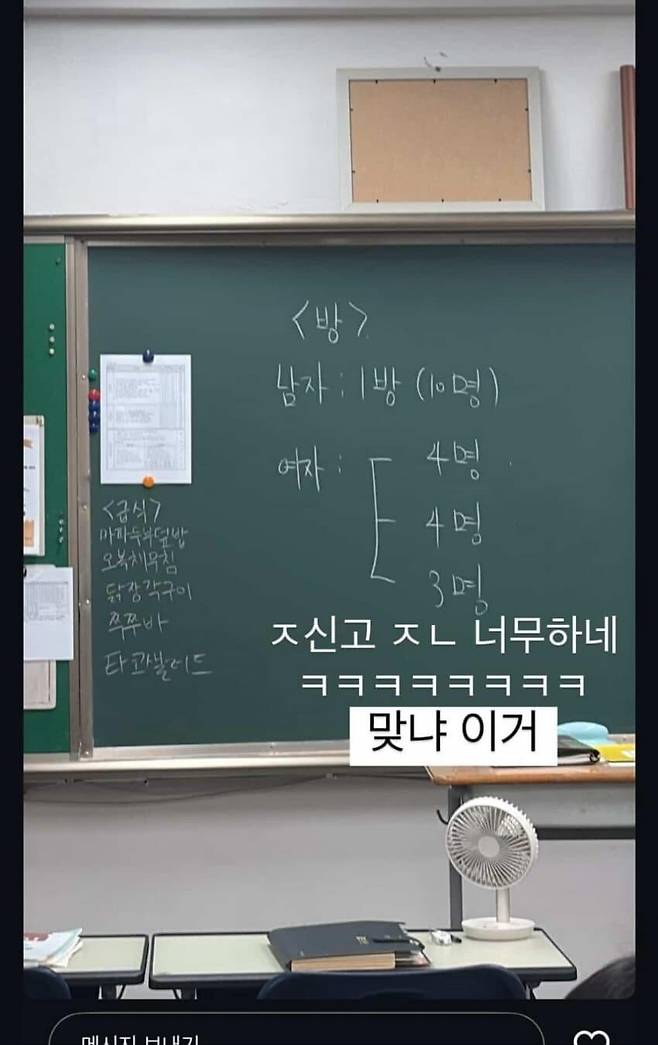 <방>
남자 : 1방 (10명)
여자 :
4명
4명
3명
<급식>
마파두부덮밥
오복채무침
닭장각구이
쭈쭈바
타코샐러드
ㅈ신고 ㅈㄴ 너무하네
ㅋㅋㅋㅋㅋㅋㅋㅋ
맞냐 이거
메시지 보내기